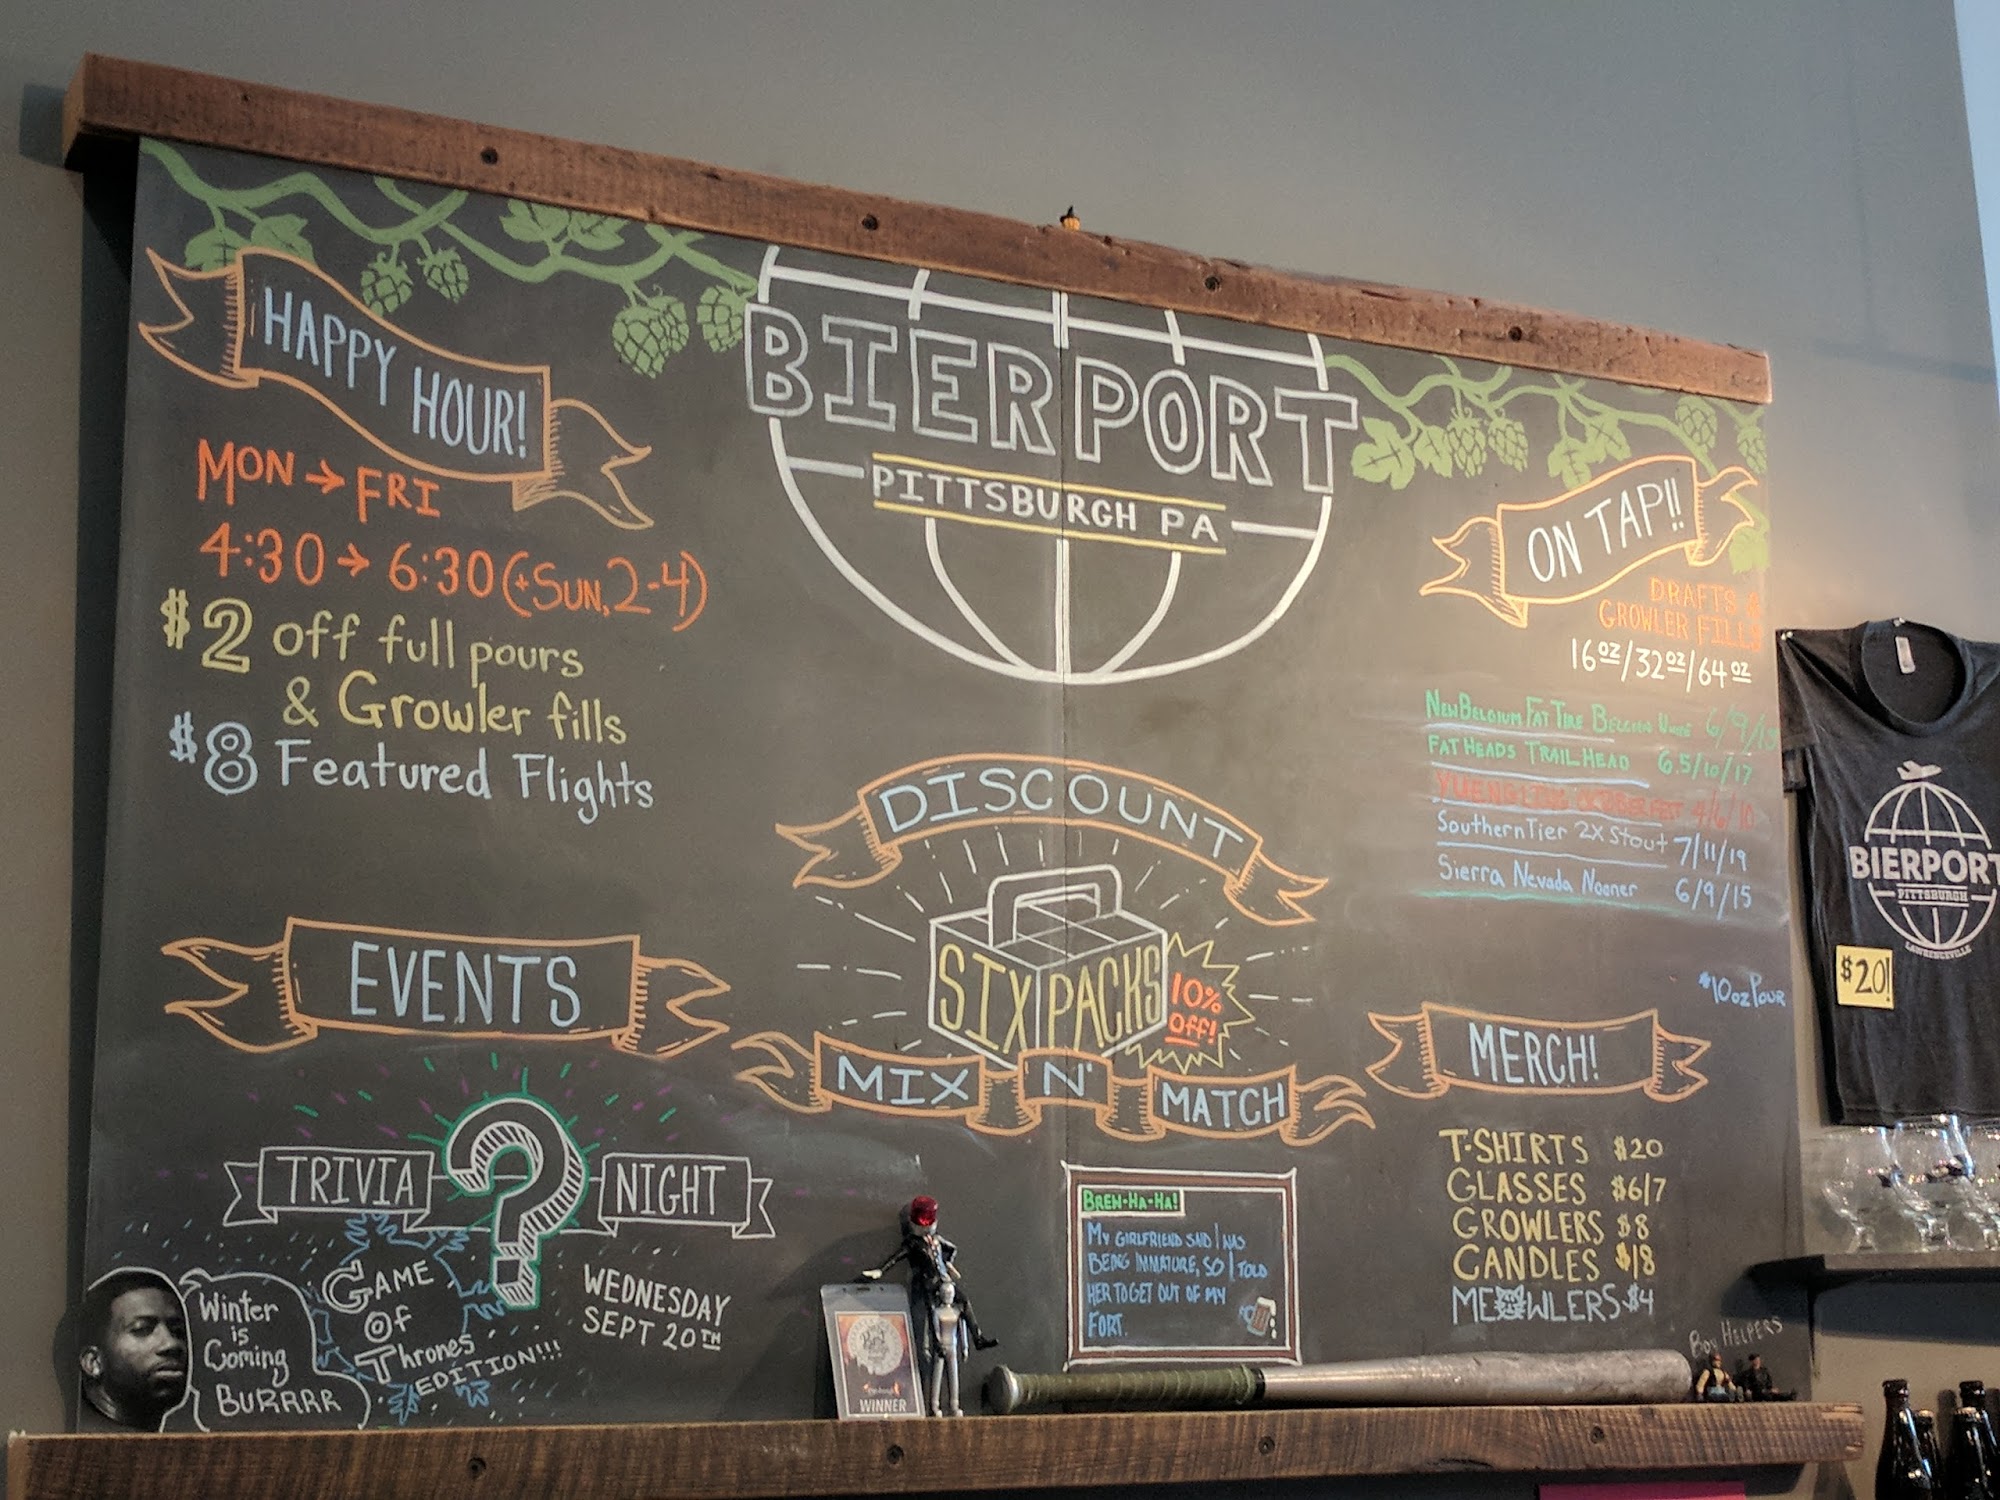 HAPPY HOUR!
MON → FRI
4:30 → 6:30 (+SUN, 2-4)
$2 off full pours
& Growler fills
$8 Featured Flights
EVENTS
TRIVIA ? NIGHT
GAME
OF
Thrones
EDITION!!!
WEDNESDAY
SEPT 20TH
Winter
is
Coming
BURRRR
BIERPORT
PITTSBURGH PA
DISCOUNT
SIX PACKS
10%
OFF!
MIX N' MATCH
BREW-HA-HA!
MY GIRLFRIEND SAID I WAS
BEING IMMATURE, SO I TOLD
HER TO GET OUT OF MY
FORT.
WINNER
ON TAP!!
DRAFTS &
GROWLER FILLS
16oz/32oz/64oz
NEW BELGIUM FAT TIRE BELGIAN WHITE 6/9/15
FAT HEADS TRAIL HEAD 6.5/10/17
YUENGLING OCTOBERFEST 4/6/10
Southern Tier 2X Stout 7/11/19
Sierra Nevada Nooner 6/9/15
*10oz POUR
MERCH!
T-SHIRTS $20
GLASSES $6/7
GROWLERS $8
CANDLES $18
MEOWLERS $4
BOY HELPERS
BIERPORT
PITTSBURGH
LAWRENCEVILLE
$20!